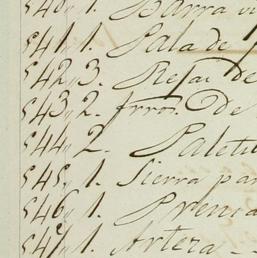 540,, 1. Barra
541,, 1. Pala de
542,, 3. Rejas de
543,, 2. frros. De
544,, 2. Paletu
545,, 1. Sierra par
546,, 1. Prensa
547,, 1. Arteza